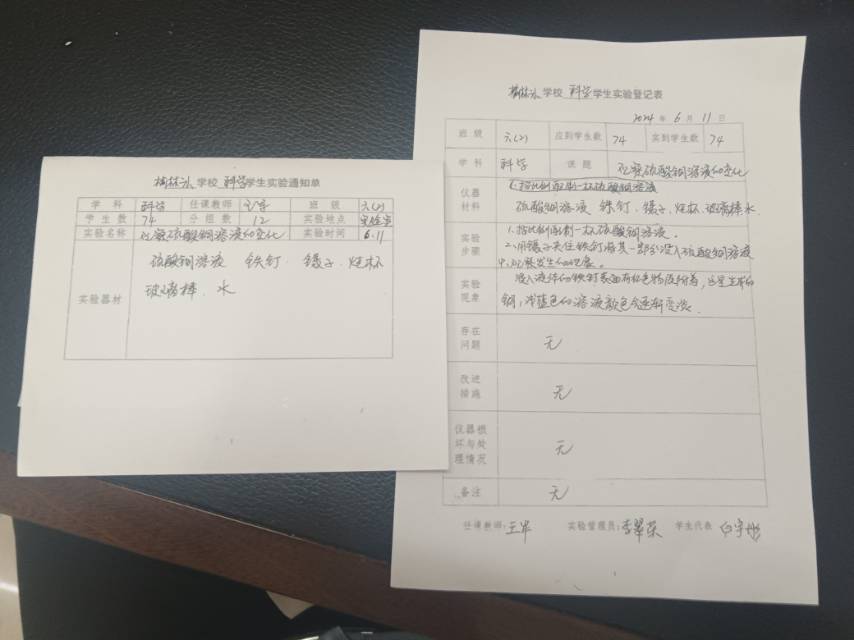 学校 科学 学生实验通知单
学科 科学 任课教师 班级 六(2)
学生数 74 分组数 12 实验地点 实验室
实验名称 观察硫酸铜溶液的变化 实验时间 6.11
实验器材 硫酸铜溶液 铁钉 、镊子、烧杯
玻璃棒、水
学校 科学 学生实验登记表
2024 年 6 月 11 日
班级 六(2) 应到学生数 74 实到学生数 74
学科 科学 课题 观察硫酸铜溶液的变化
仪器材料 1.按比例配制一杯硫酸铜溶液
硫酸铜溶液 铁钉、镊子、烧杯、玻璃棒、水
实验步骤 1.按比例配制一杯硫酸铜溶液。
2.用镊子夹住铁钉将其一部分浸入硫酸铜溶液
中,观察发生的现象。
实验现象 浸入液体的铁钉表面有红色物质附着,这是生成的
铜,浅蓝色的溶液颜色会逐渐变淡。
存在问题 无
改进措施 无
仪器损坏与处理情况 无
备注 无
任课教师:王军 实验管理员:李翠荣 学生代表